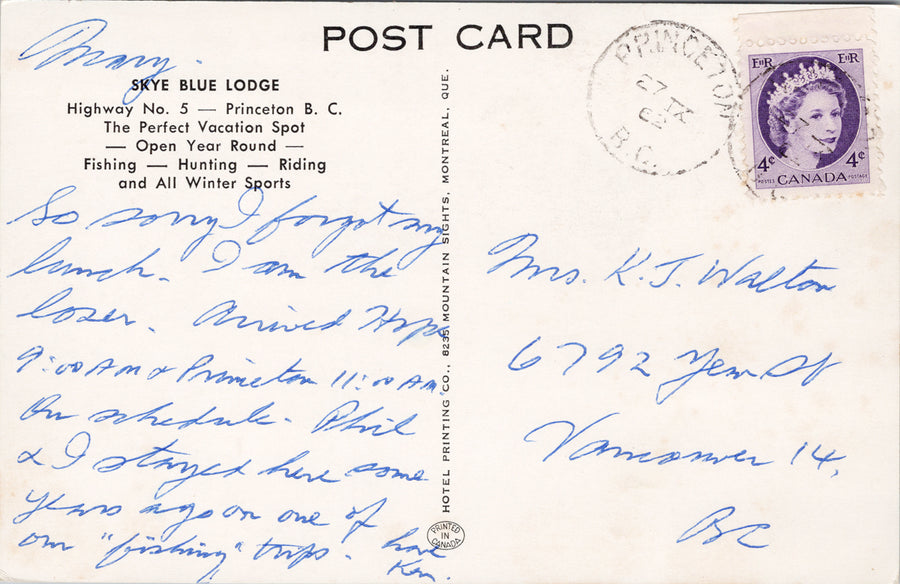 POST CARD
Mary.
SKYE BLUE LODGE
Highway No. 5 — Princeton B. C.
The Perfect Vacation Spot
— Open Year Round —
Fishing — Hunting — Riding
and All Winter Sports
So sorry I forgot my
lunch. I am the
loser. Arrived Hope
9:00 AM & Princeton 11:00 AM
On schedule. Phil
& I stayed here some
years ago on one of
our "fishing" trips.
love
Ken.
HOTEL PRINTING CO., 8235 MOUNTAIN SIGHTS, MONTREAL, QUE.
PRINTED
IN
CANADA
PRINCETON
27 IX
62
B.C.
EIIR EIIR
4¢ 4¢
POSTES CANADA POSTAGE
Mrs. K. J. Walton
6792 Yew St
Vancouver 14,
BC